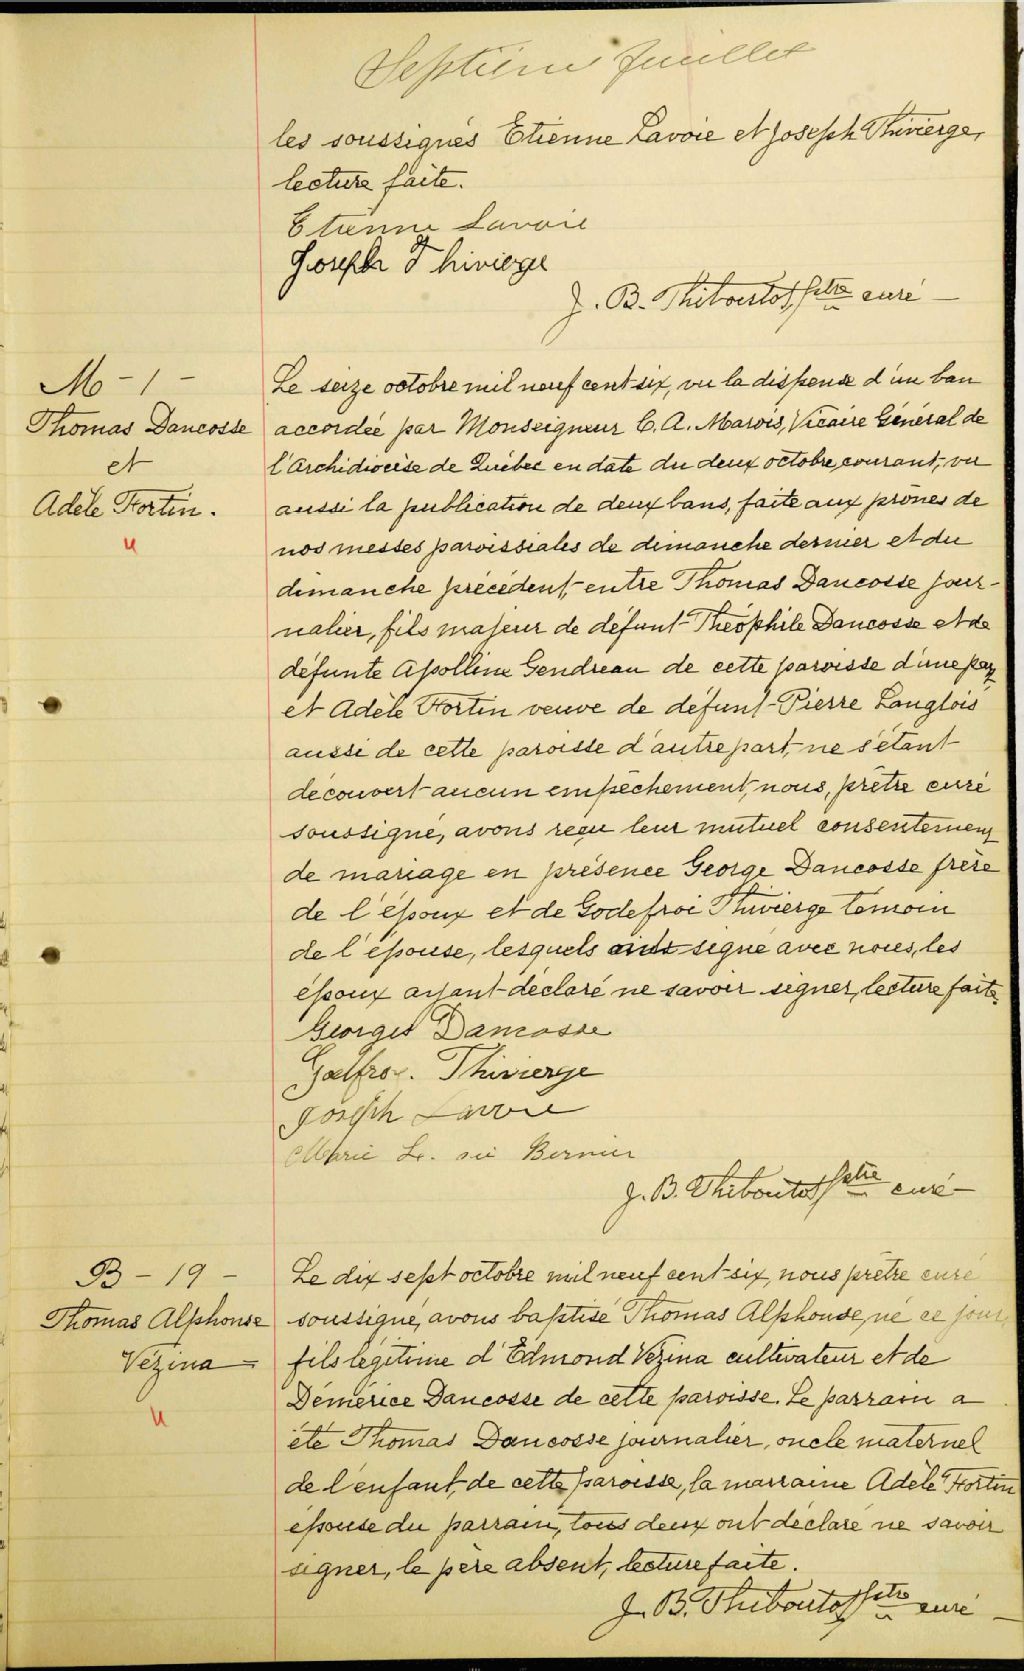 Septième feuillet
les soussignés Etienne Lavoie et Joseph Thivierge,
lecture faite.
Etienne Lavoie
Joseph Thivierge
J. B. Thiboutot, ptre curé —
M - 1 -
Thomas Dancosse
et
Adèle Fortin.
u
Le seize octobre mil neuf cent six, vu la dispense d'un ban
accordée par Monseigneur C. A. Marois, Vicaire Général de
l'Archidiocèse de Québec en date du deux octobre courant, vu
aussi la publication de deux bans, faite aux prônes de
nos messes paroissiales de dimanche dernier et du
dimanche précédent, entre Thomas Dancosse jour-
nalier, fils majeur de défunt Théophile Dancosse et de
défunte Apolline Gendreau de cette paroisse d'une part,
et Adèle Fortin veuve de défunt Pierre Langlois
aussi de cette paroisse d'autre part, ne s'étant
découvert aucun empêchement, nous, prêtre curé
soussigné, avons reçu leur mutuel consentement
de mariage en présence George Dancosse frère
de l'époux et de Godefroi Thivierge témoin
de l'épouse, lesquels signé avec nous, les
époux ayant déclaré ne savoir signer, lecture faite.
Georges Dancosse
Thivierge
Joseph Lavoie
Marie Bernier
J. B. Thiboutot ptre curé —
B - 19 -
Thomas Alphonse
Vézina =
u
Le dix sept octobre mil neuf cent six, nous prêtre curé
soussigné, avons baptisé Thomas Alphonse, né ce jour,
fils légitime d'Edmond Vézina cultivateur et de
Démérice Dancosse de cette paroisse. Le parrain a
été Thomas Dancosse journalier, oncle maternel
de l'enfant, de cette paroisse, la marraine Adèle Fortin
épouse du parrain, tous deux ont déclaré ne savoir
signer, le père absent, lecture faite.
J. B. Thiboutot ptre curé —